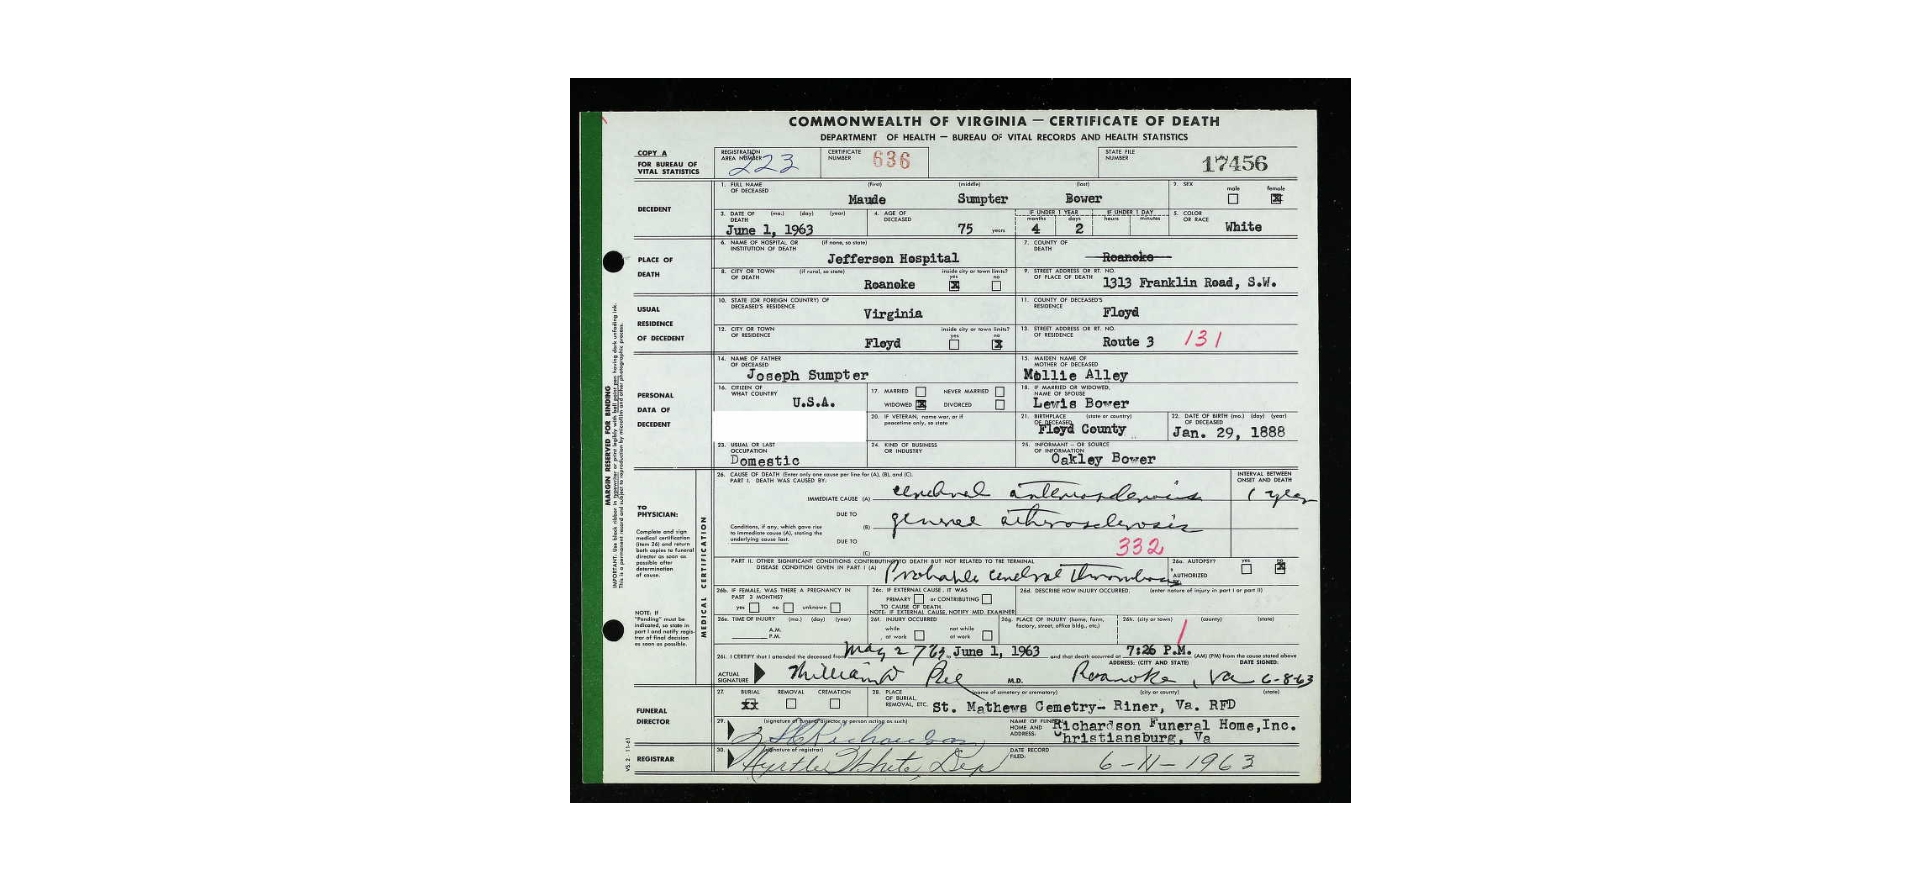 COMMONWEALTH OF VIRGINIA — CERTIFICATE OF DEATH
DEPARTMENT OF HEALTH — BUREAU OF VITAL RECORDS AND HEALTH STATISTICS
COPY A
FOR BUREAU OF
VITAL STATISTICS
REGISTRATION
AREA NUMBER 223
CERTIFICATE
NUMBER 636
STATE FILE
NUMBER 17456
DECEDENT
1. FULL NAME
OF DECEASED (first) (middle) (last)
Maude Sumpter Bower
2. SEX male female
3. DATE OF (mo.) (day) (year)
DEATH
June 1, 1963
4. AGE OF
DECEASED
75 years
IF UNDER 1 YEAR IF UNDER 1 DAY
months days hours minutes
4 2
5. COLOR
OR RACE
White
PLACE OF
DEATH
6. NAME OF HOSPITAL OR (if none, so state)
INSTITUTION OF DEATH
Jefferson Hospital
7. COUNTY OF
DEATH
Roanoke
8. CITY OR TOWN (if rural, so state) inside city or town limits?
OF DEATH yes no
Roanoke
9. STREET ADDRESS OR RT. NO.
OF PLACE OF DEATH
1313 Franklin Road, S.W.
USUAL
RESIDENCE
OF DECEDENT
10. STATE (OR FOREIGN COUNTRY) OF
DECEASED'S RESIDENCE
Virginia
11. COUNTY OF DECEASED'S
RESIDENCE
Floyd
12. CITY OR TOWN inside city or town limits?
OF RESIDENCE yes no
Floyd
13. STREET ADDRESS OR RT. NO.
OF RESIDENCE
Route 3 131
PERSONAL
DATA OF
DECEDENT
14. NAME OF FATHER
OF DECEASED
Joseph Sumpter
15. MAIDEN NAME OF
MOTHER OF DECEASED
Mollie Alley
16. CITIZEN OF
WHAT COUNTRY
U.S.A.
17. MARRIED NEVER MARRIED
WIDOWED DIVORCED
18. IF MARRIED OR WIDOWED,
NAME OF SPOUSE
Lewis Bower
20. IF VETERAN, name war, or if
peacetime only, so state
21. BIRTHPLACE (state or country)
OF DECEASED
Floyd County
22. DATE OF BIRTH (mo.) (day) (year)
OF DECEASED
Jan. 29, 1888
23. USUAL OR LAST
OCCUPATION
Domestic
24. KIND OF BUSINESS
OR INDUSTRY
25. INFORMANT - OR SOURCE
OF INFORMATION
Oakley Bower
MARGIN RESERVED FOR BINDING
TO
PHYSICIAN:
Complete and sign
medical certification
(item 26) and return
both copies to funeral
director as soon as
possible after
determination
of cause.
NOTE: IF
"Pending" must be
indicated, so state in
part I and notify regis-
trar of final decision
as soon as possible.
MEDICAL CERTIFICATION
26. CAUSE OF DEATH (Enter only one cause per line for (A), (B), and (C).
PART I. DEATH WAS CAUSED BY:
INTERVAL BETWEEN
ONSET AND DEATH
IMMEDIATE CAUSE (A) cerebral arteriosclerosis 1 year
DUE TO
(B) general atherosclerosis
Conditions, if any, which gave rise
to immediate cause (A), stating the
underlying cause last.
DUE TO
(C)
332
PART II. OTHER SIGNIFICANT CONDITIONS CONTRIBUTING TO DEATH BUT NOT RELATED TO THE TERMINAL
DISEASE CONDITION GIVEN IN PART I (A)
Probable cerebral thrombosis
26a. AUTOPSY? yes no
AUTHORIZED
26b. IF FEMALE, WAS THERE A PREGNANCY IN
PAST 3 MONTHS?
yes no unknown
26c. IF EXTERNAL CAUSE, IT WAS
PRIMARY or CONTRIBUTING
TO CAUSE OF DEATH
NOTE: IF EXTERNAL CAUSE, NOTIFY MED. EXAMINER
26d. DESCRIBE HOW INJURY OCCURRED. (enter nature of injury in part I or part II)
26e. TIME OF INJURY (mo.) (day) (year)
A.M.
P.M.
26f. INJURY OCCURRED
while not while
at work at work
26g. PLACE OF INJURY (home, farm,
factory, street, office bldg., etc.)
26h. (city or town) (county) (state)
26i. I CERTIFY that I attended the deceased from May 27 63 to June 1, 1963 and that death occurred at 7:26 P.M. (AM) (PM) from the cause stated above
ADDRESS: (CITY AND STATE) DATE SIGNED:
ACTUAL
SIGNATURE William D M.D. Roanoke, Va 6-8-63
FUNERAL
DIRECTOR
27. BURIAL REMOVAL CREMATION
xx
28. PLACE (name of cemetery or crematory) (city or county) (state)
OF BURIAL,
REMOVAL, ETC. St. Mathews Cemetry- Riner, Va. RFD
29. (signature of funeral director or person acting as such)
Richardson
NAME OF FUNERAL
HOME AND
ADDRESS:
Richardson Funeral Home,Inc.
Christiansburg, Va
REGISTRAR
30. (signature of registrar)
Myrtle White, Dep
DATE RECORD
FILED:
6-11-1963